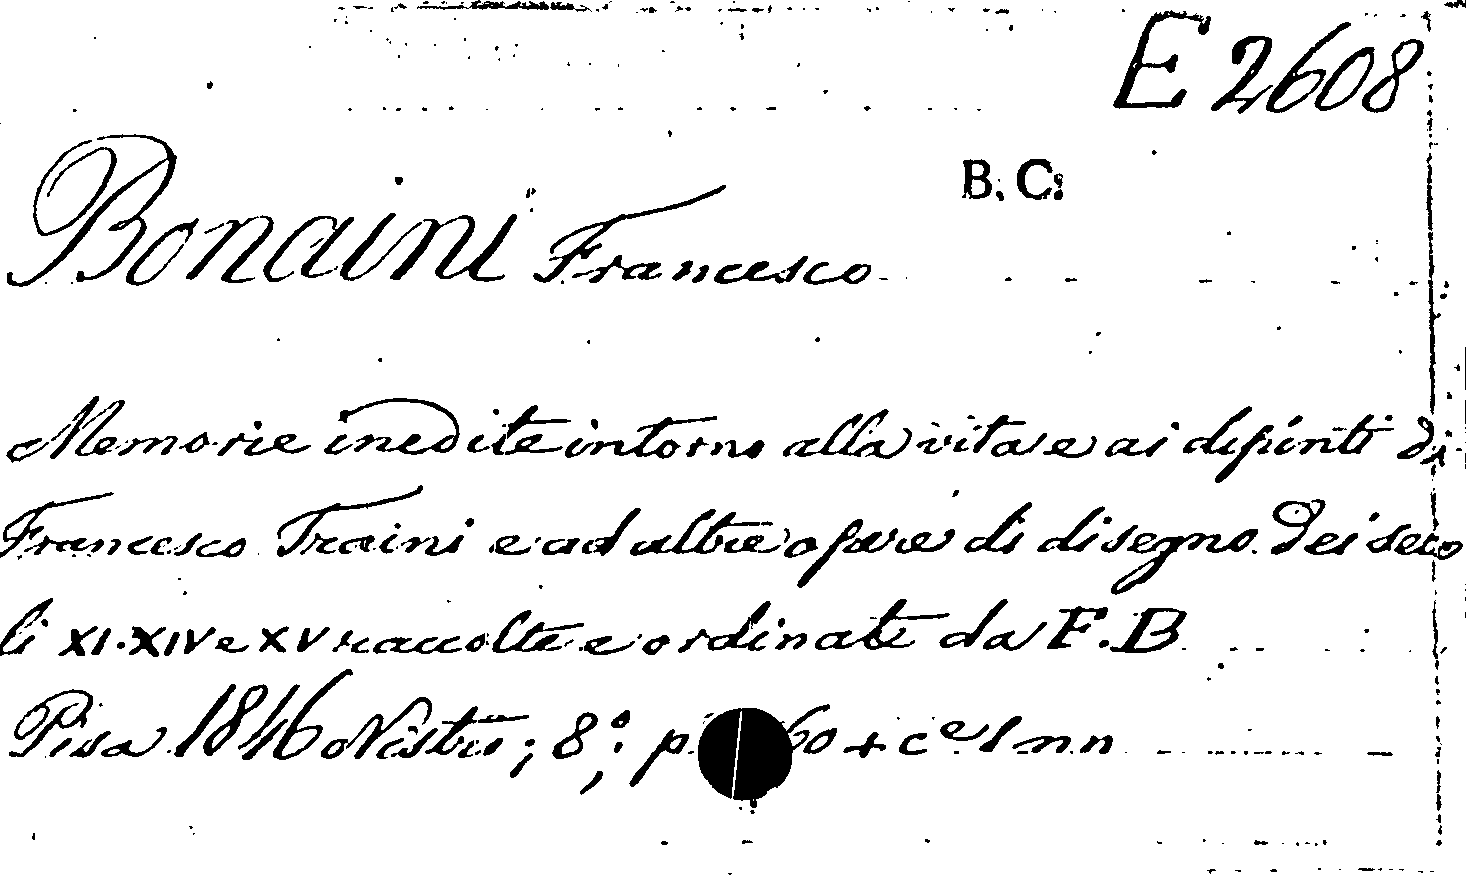 E 2608
B. C.
Bonaini Francesco
Memorie inedite intorno alla vita e ai dipinti di
Francesco Traini e ad altre opere di disegno dei seco
li XI. XIV e XV raccolte e ordinate da F. B
Pisa 1846 Nistri; 8°, p. 60 + ce 1 nn